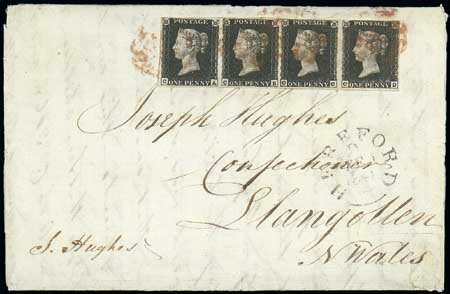 POSTAGE POSTAGE POSTAGE POSTAGE
C ONE PENNY A C ONE PENNY B C ONE PENNY C C ONE PENNY D
Joseph Hughes
HEREFORD
Confectioner
Llangollen
N Wales
J. Hughes